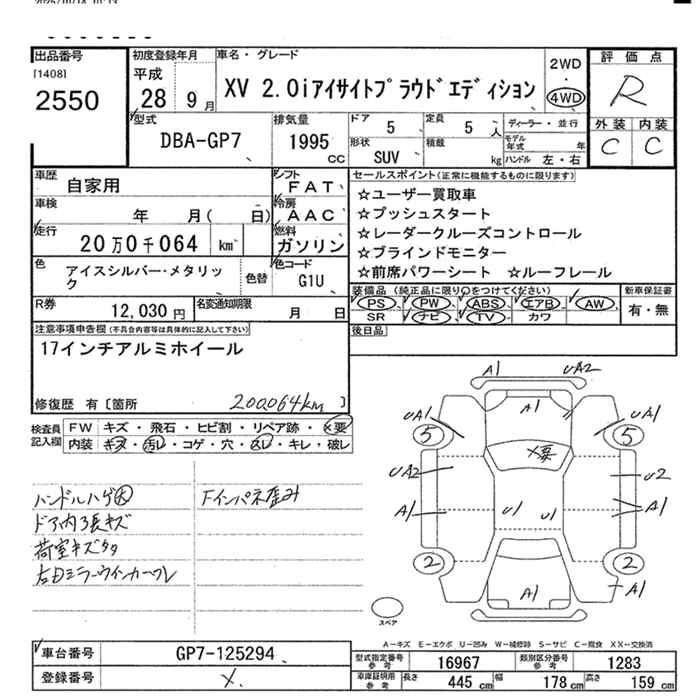 出品番号
[1408]
2550
初度登録年月
平成
28 9月
車名・グレード
XV 2.0iアイサイトプラウドエディション
2WD
・
4WD
評価点
R
外装 内装
C C
型式
DBA-GP7
排気量
1995
CC
ドア 5
定員 5 人
形状 SUV
積載 kg
ディーラー・並行
モデル年式 年
ハンドル 左・右
車歴
自家用
シフト
FAT
車検
年 月( 日)
冷房
AAC
走行
20万0千064 km
燃料
ガソリン
色
アイスシルバー・メタリック
色替
色コード
G1U
R券
12,030円
名変通知期限
月 日
セールスポイント(正常に機能するものに限ります)
☆ユーザー買取車
☆プッシュスタート
☆レーダークルーズコントロール
☆ブラインドモニター
☆前席パワーシート ☆ルーフレール
装備品(純正品に限り○をつけてください)
PS PW ABS エアB AW
SR ナビ TV カワ
新車保証書
有・無
後日品
注意事項申告欄(不具合内容等は具体的に記入して下さい)
17インチアルミホイール
修復歴 有[箇所 200,064km ]
検査員記入欄
FW キズ・飛石・ヒビ割・リペア跡・×要
内装 キズ・汚レ・コゲ・穴・スレ・キレ・破レ
ハンドルハゲ大
ドア内張キズ
荷室キズ
Fインパネ歪み
A1 UA2
A1
UA1 UA1
5 5
×要
UA2 U2
A1 U1 U1 A1
2 2
A1 A1
スペア
A－キズ E－エクボ U－凹み W－補修跡 S－サビ C－腐食 XX－交換済
車台番号
GP7-125294
登録番号
型式指定番号
参考
16967
類別区分番号
参考
1283
車庫証明用
参考
長さ 445 cm 幅 178 cm 高さ 159 cm